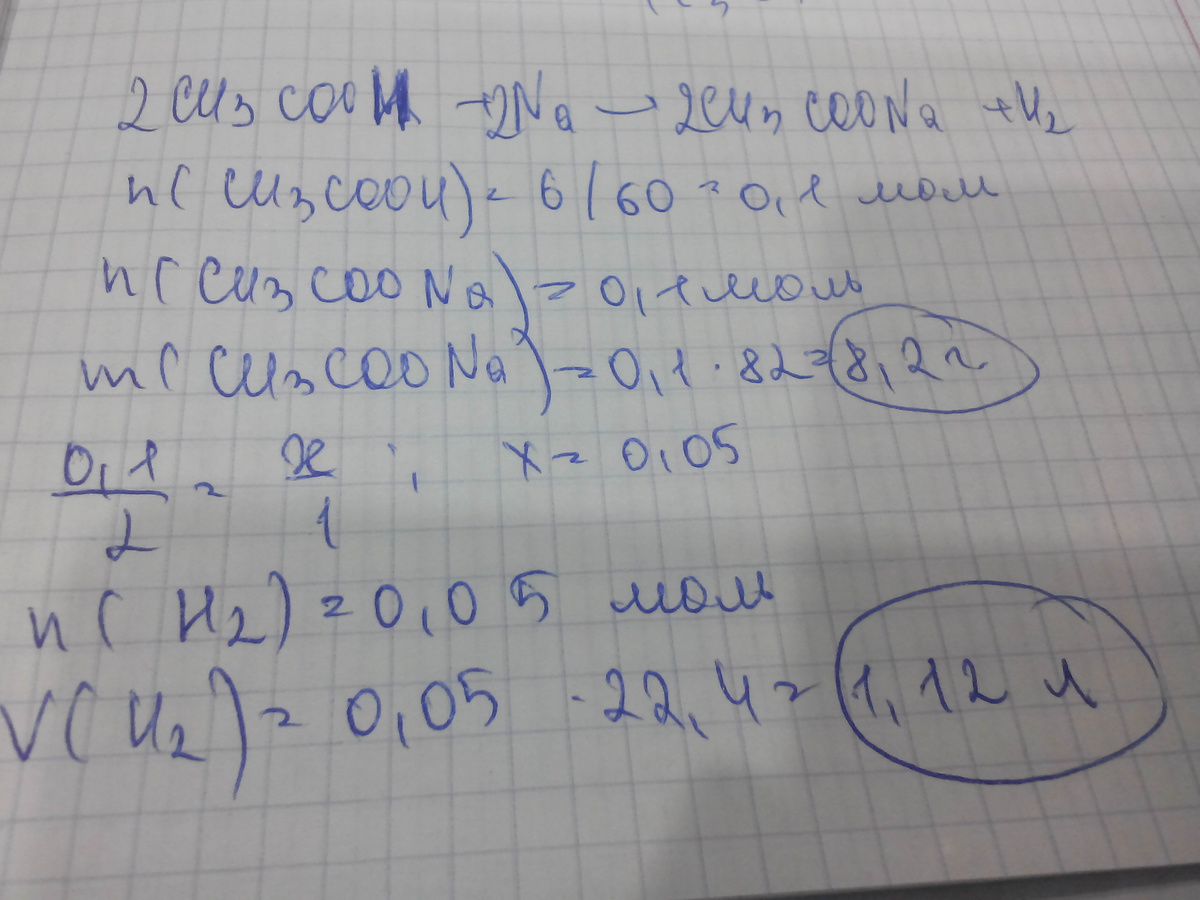 2CH3COOH + 2Na → 2CH3COONa + H2
n(CH3COOH) = 6/60 = 0,1 моль
n(CH3COONa) = 0,1 моль
m(CH3COONa) = 0,1 · 82 = 8,2 г
0,1/2 = x/1 ; x = 0,05
n(H2) = 0,05 моль
V(H2) = 0,05 · 22,4 = 1,12 л